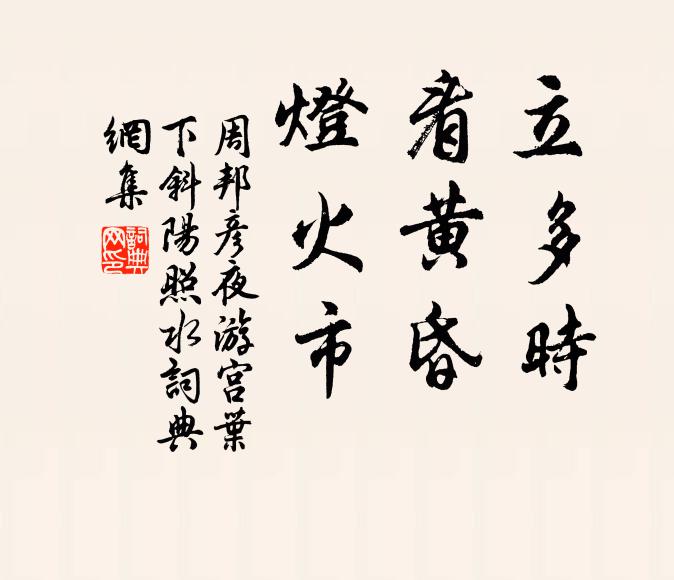 立多時
看黃昏
燈火市
周邦彥夜游宮葉
下斜陽照水詞典
網集
詞典
网印